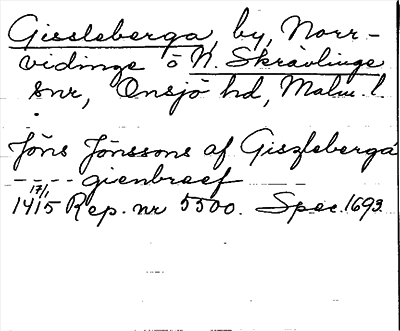 Gissleberga, by, Norr-
vidinge o N. Skrävlinge
snr, Onsjö hd, Malm. l.
Jöns Jönssons af Giszleberga
---- gienbreef
17/1
1415 Rep. nr 5500. Spec. 1693.